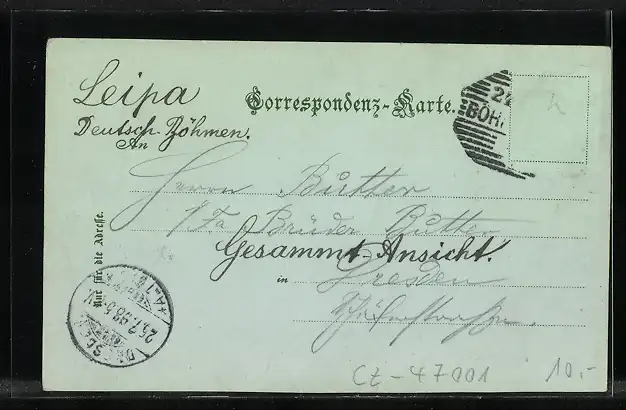 Leipa
Deutsch-Böhmen.
Correspondenz-Karte.
24
BÖH
An
Herrn Butter
1/Fa Brüder Butter
Gesammt-Ansicht.
in Dresden
Nur für die Adresse.
DRESDEN
25.7.98.
Cz-47001
10.-